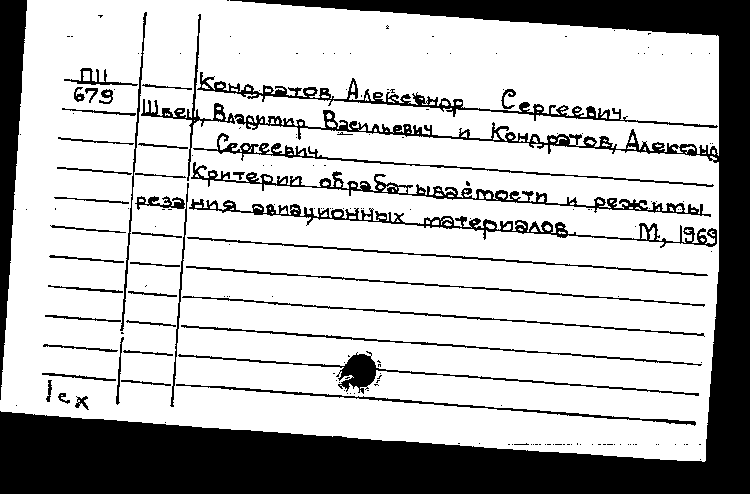 П11 Кондратов, Александр Сергеевич.
679
Швец, Владимир Васильевич и Кондратов, Александ
Сергеевич.
Критерии обрабатываемости и режимы
резания авиационных материалов. М, 1969
1сх